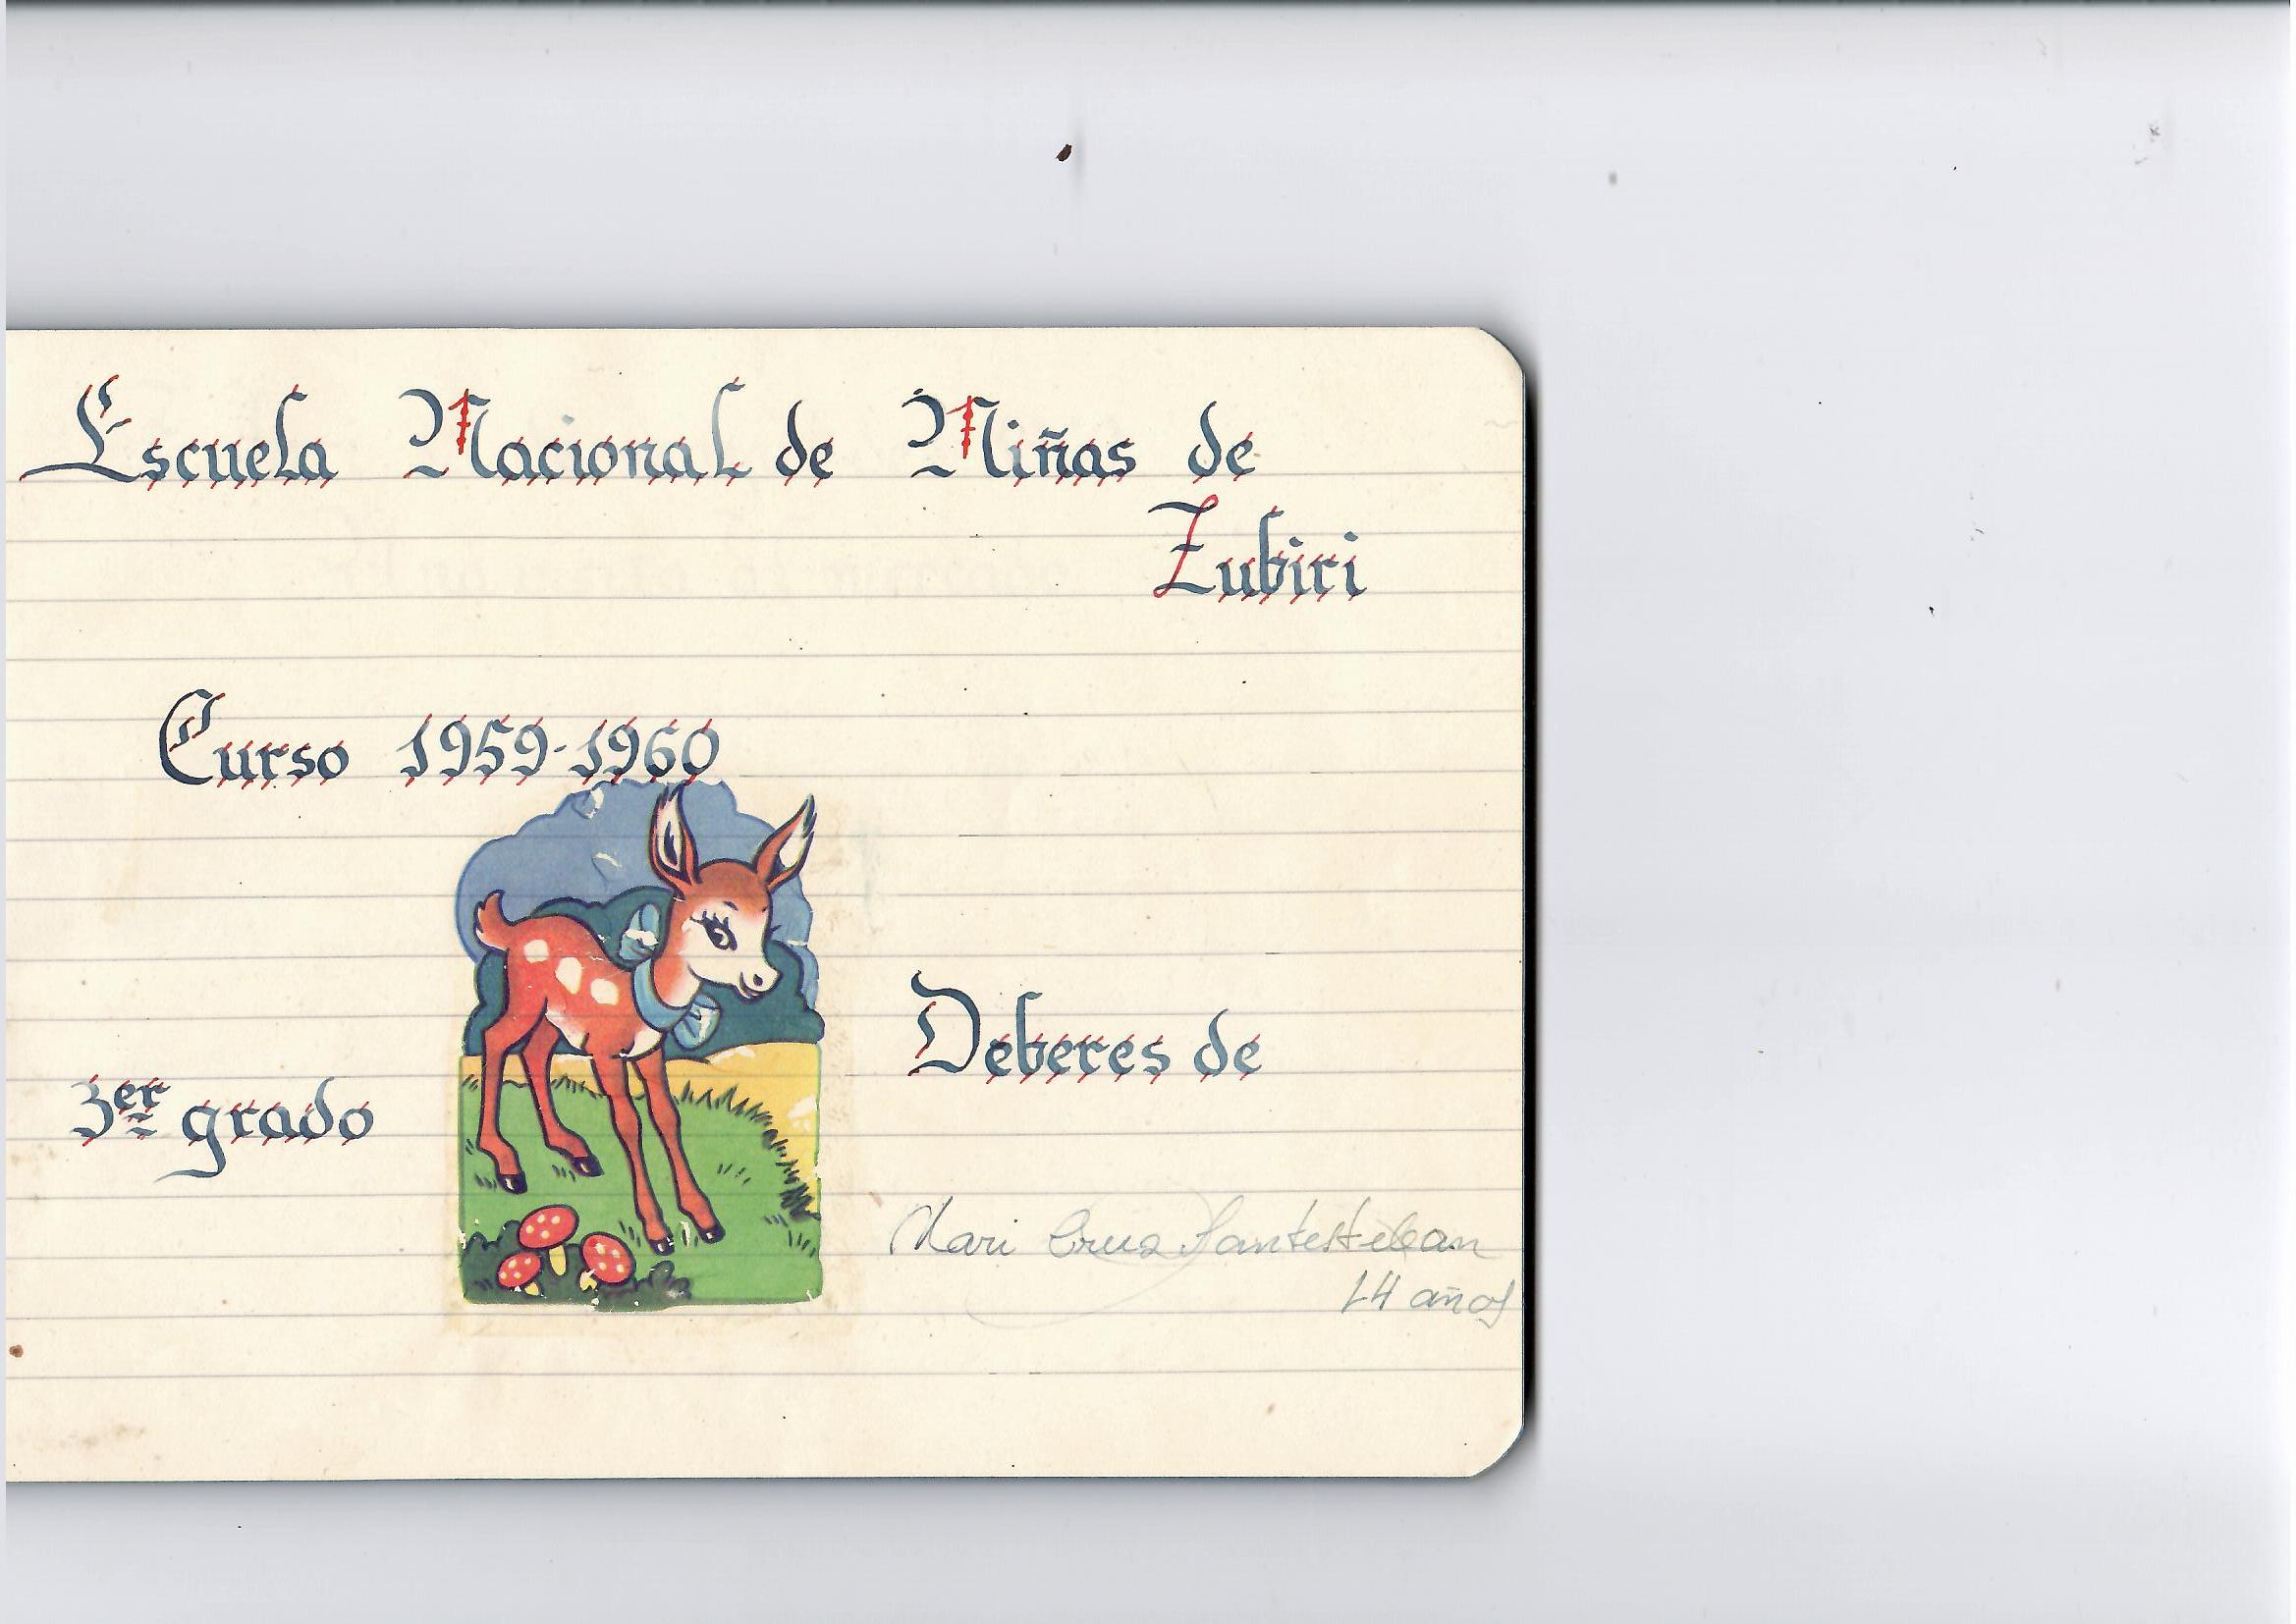 Escuela Nacional de Niñas de
Zubiri
Curso 1959-1960
3er grado
Deberes de
Mari Cruz Santesteban
14 años